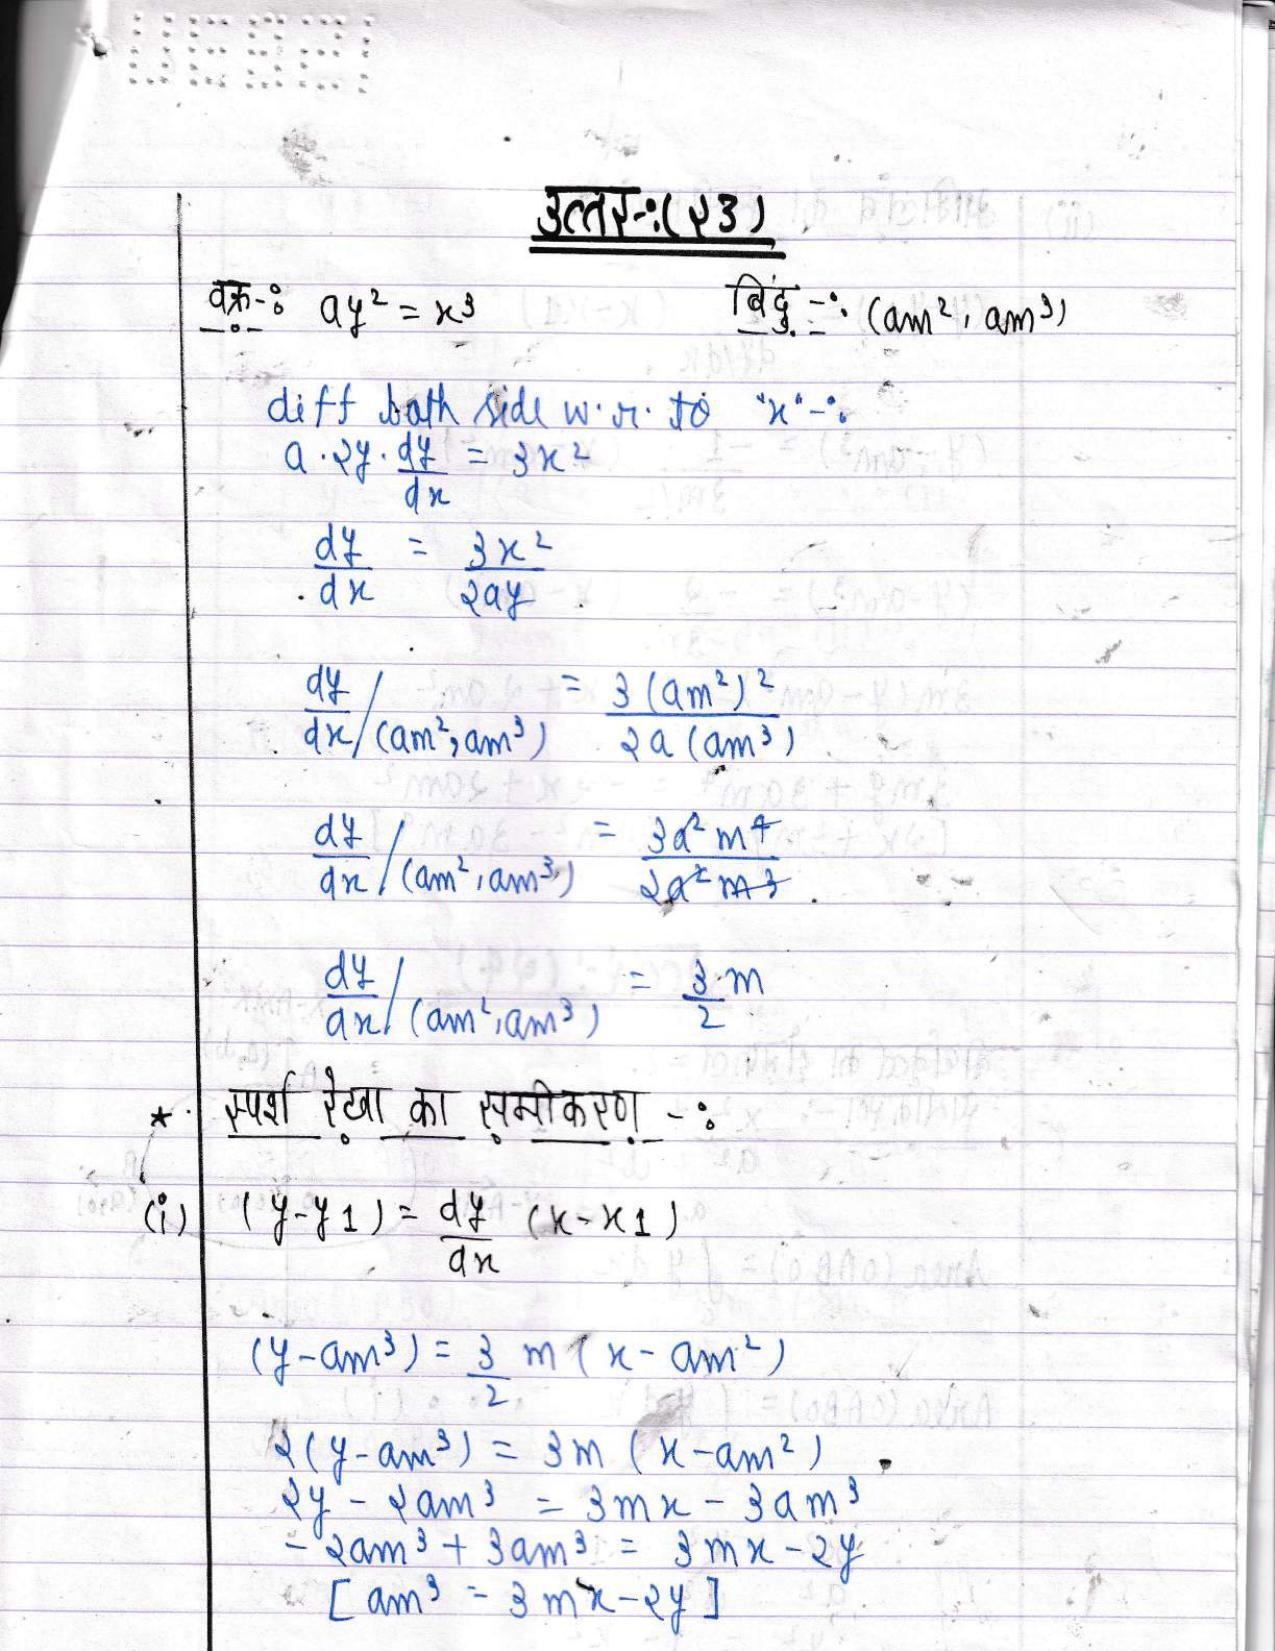 उत्तर-:(23)
वक्र-: ay² = x³ बिंदु -: (am², am³)
diff both side w.r. to "x"-:
a·2y·dy/dx = 3x²
dy/dx = 3x²/2ay
dy/dx/(am², am³) = 3(am²)²/2a(am³)
dy/dx/(am², am³) = 3a²m⁴/2a²m³
dy/dx/(am², am³) = 3/2 m
* स्पर्श रेखा का समीकरण -:
(i) (y-y1) = dy/dx (x-x1)
(y-am³) = 3/2 m (x-am²)
2(y-am³) = 3m (x-am²)
2y - 2am³ = 3mx - 3am³
- 2am³ + 3am³ = 3mx - 2y
[am³ = 3mx - 2y]